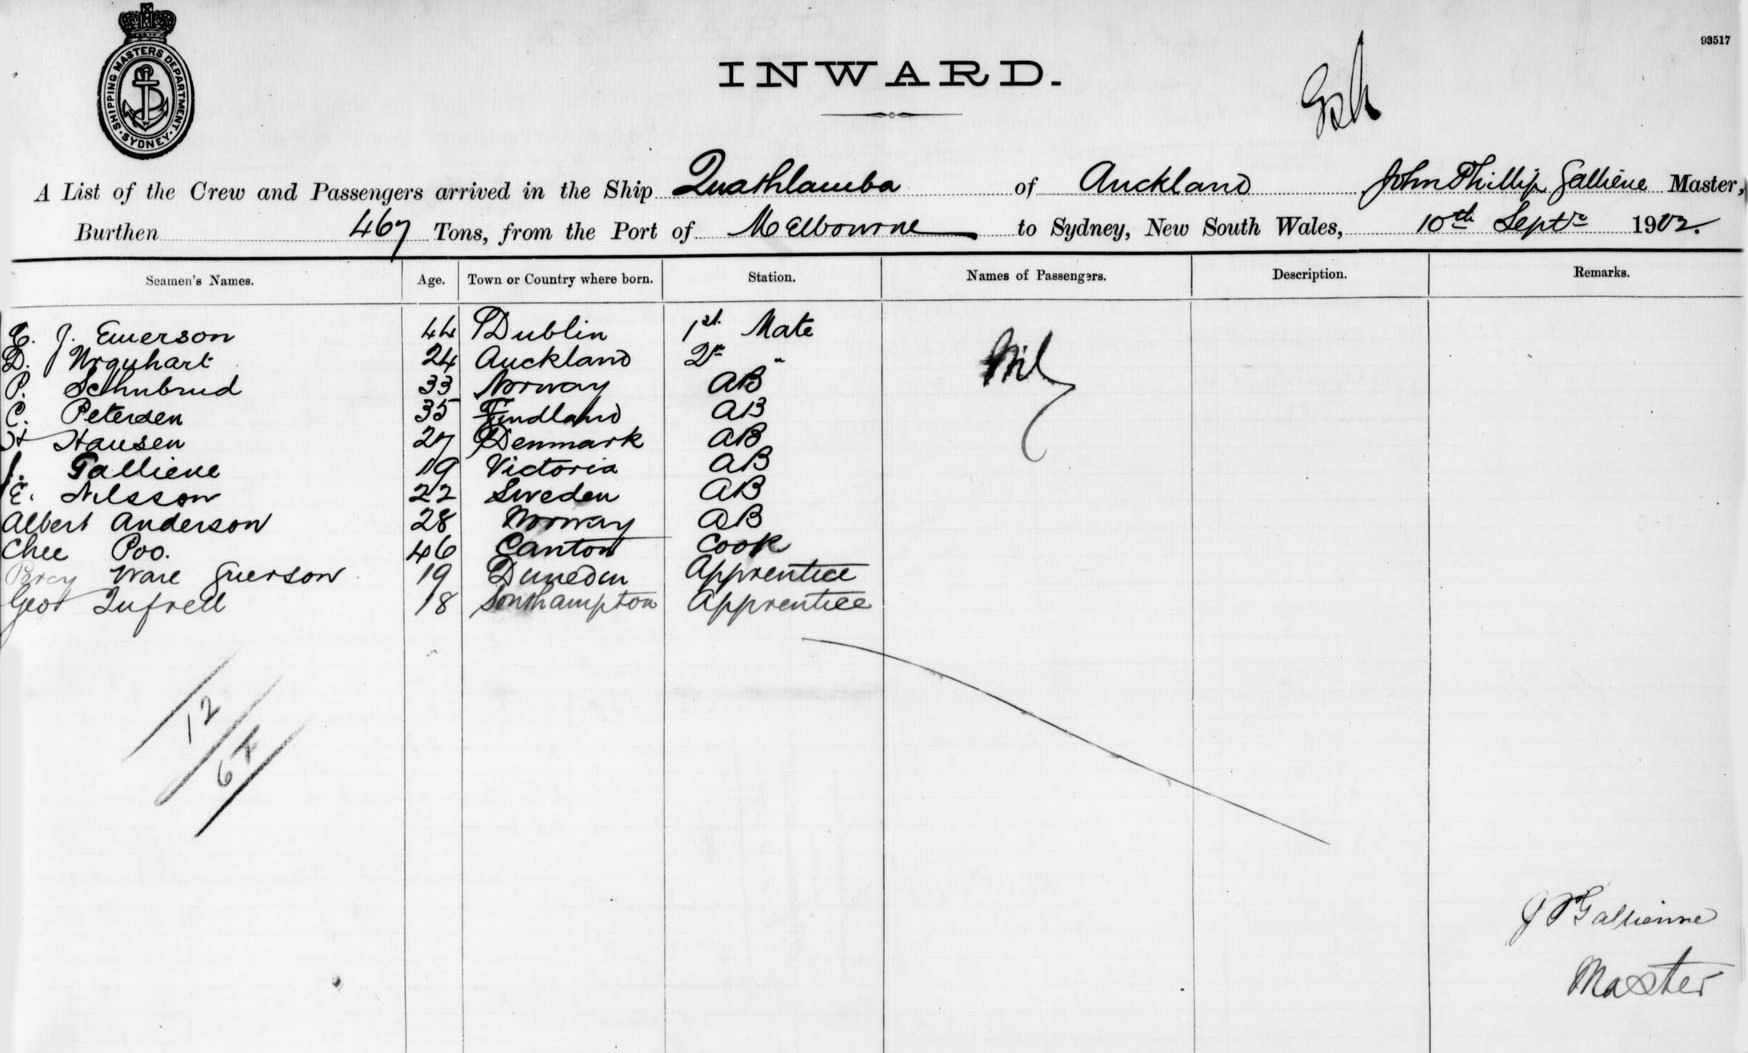 93517
SHIPPING MASTERS DEPARTMENT
SYDNEY
INWARD.
A List of the Crew and Passengers arrived in the Ship Quathlamba of Auckland John Phillip Galliene Master,
Burthen 467 Tons, from the Port of Melbourne to Sydney, New South Wales, 10th Septr 1902.
Seamen's Names. Age. Town or Country where born. Station. Names of Passengers. Description. Remarks.
E. J. Emerson 44 Dublin 1st Mate Nil
D. Urquhart 24 Auckland 2nd "
P. 33 Norway AB
C. Petersen 35 Findland AB
H Hansen 27 Denmark AB
J. Galliene 19 Victoria AB
E. Nilsson 22 Sweden AB
Albert Anderson 28 Norway AB
Chee Poo. 46 Canton Cook
Percy Ware 19 Dunedin Apprentice
Geo 18 Southampton Apprentice
12
67
J P Gallienne
Master